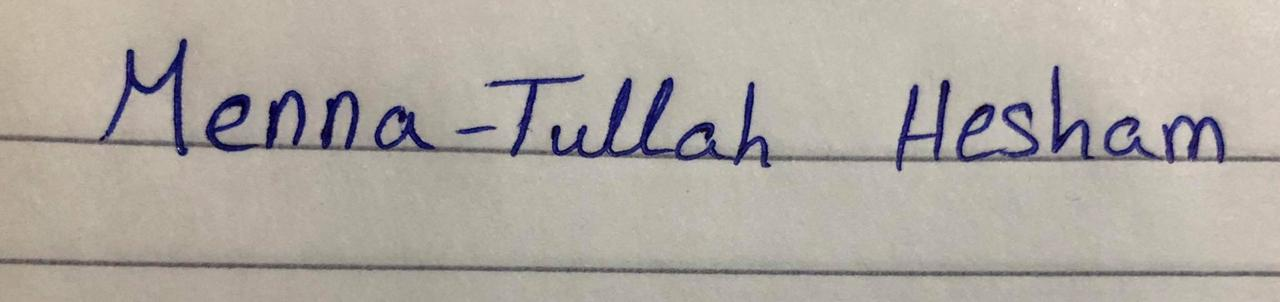 Menna-Tullah Hesham